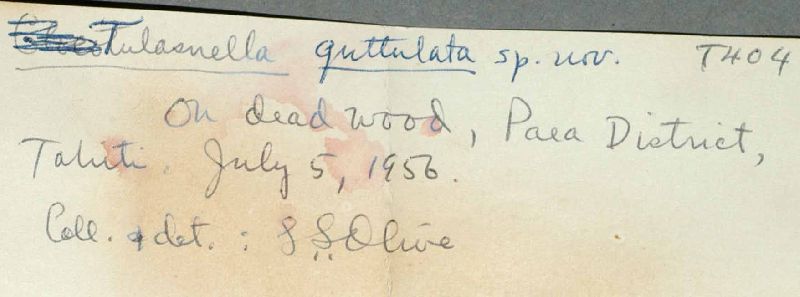 Tulasnella guttulata sp. nov. T404
On dead wood, Paea District,
Tahiti. July 5, 1956.
Coll. & det. : L S Olive